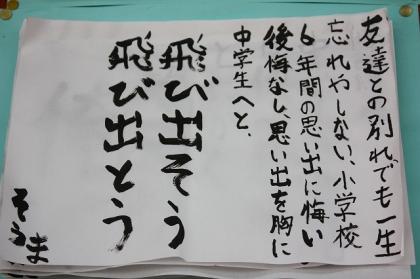 友達との別れでも一生
忘れやしない、小学校
6年間の思い出に悔い
後悔なし、思い出を胸に
中学生へと、
飛び出そう
飛び出とう
そうま